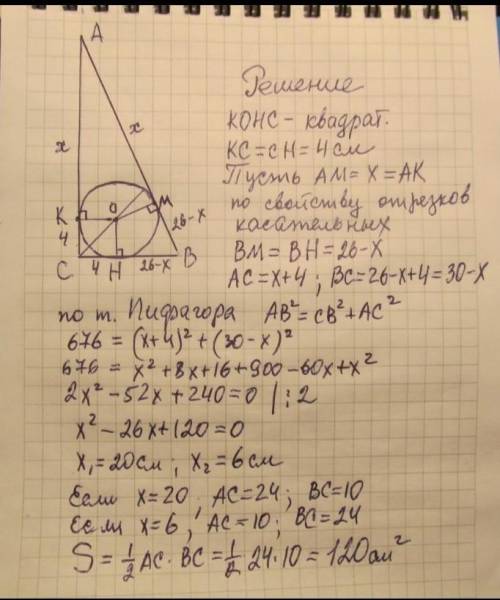 A
x
x
K
O
M
4
26-x
C
4
H
26-x
B
Решение
KOHC - квадрат.
KC = CH = 4 см
Пусть AM = X = AK
по свойству отрезков
касательных
BM = BH = 26-X
AC = X+4 ; BC = 26-X+4 = 30-X
по т. Пифагора AB² = CB² + AC²
676 = (x+4)² + (30-x)²
676 = x² + 8x + 16 + 900 - 60x + x²
2x² - 52x + 240 = 0 | : 2
x² - 26x + 120 = 0
x₁ = 20 см ; x₂ = 6 см
Если x = 20 AC = 24 ; BC = 10
Если x = 6 , AC = 10 ; BC = 24
S = 1/2 AC · BC = 1/2 · 24 · 10 = 120 см²